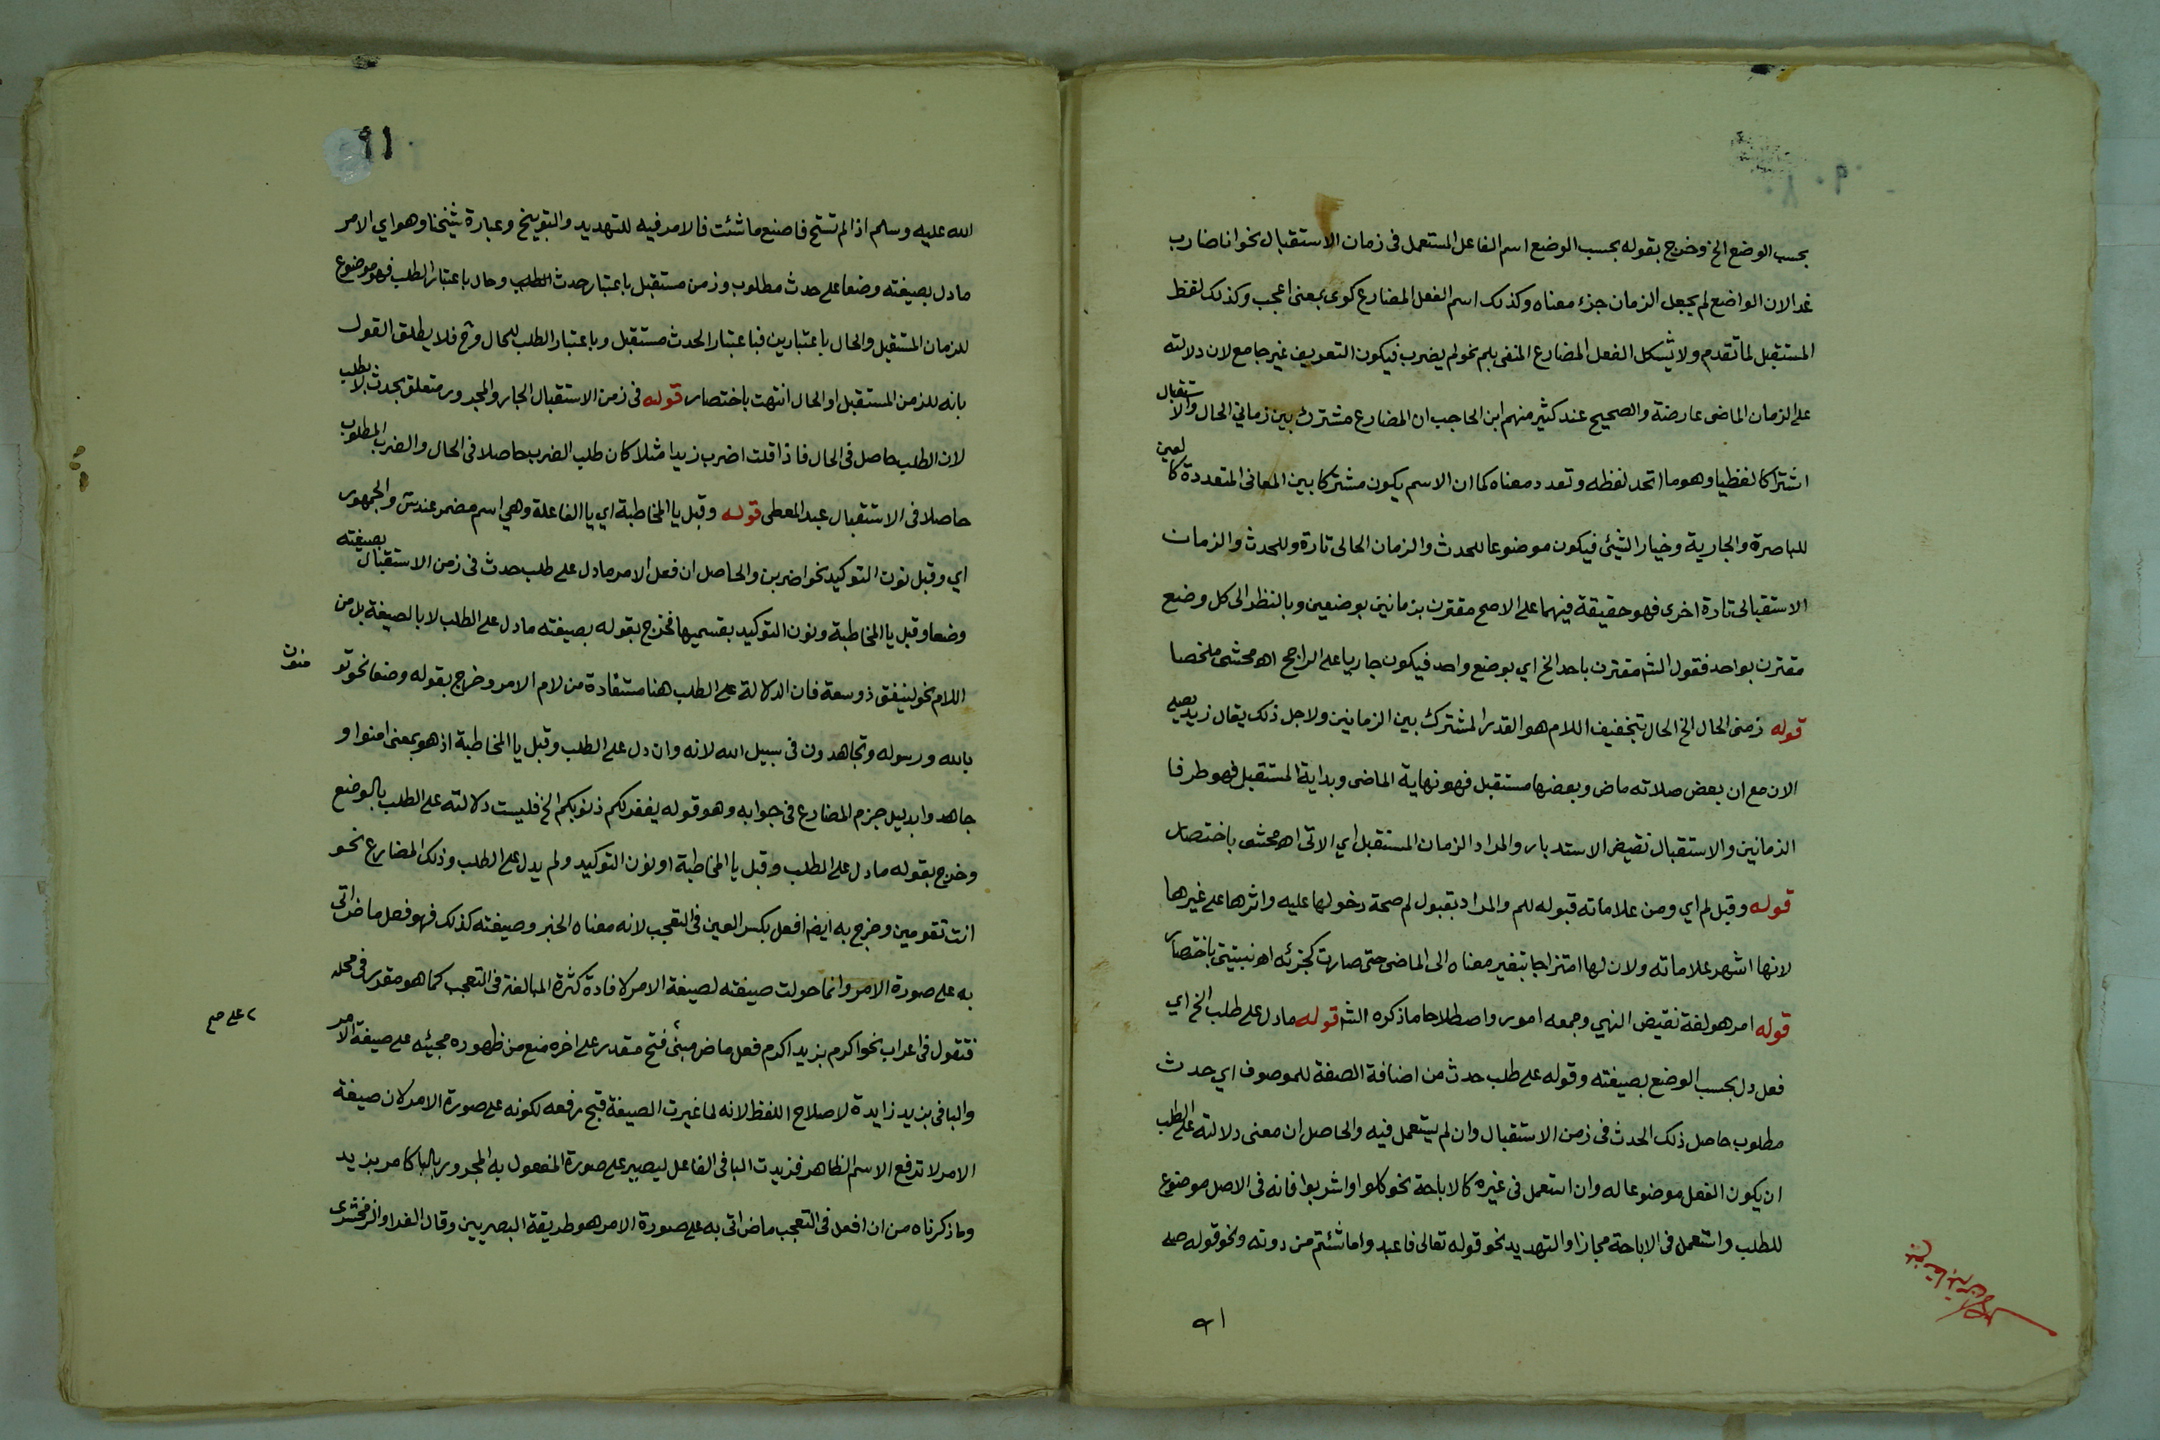 بحسب الوضع الخ وخرج بقوله بحسب الوضع اسم الفاعل المستعمل فى زمان الاستقبال نحو انا ضارب
غدا لان الواضع لم يجعل الزمان جزء معناه وكذلك اسم الفعل المضارع كوى بمعنى اعجب وكذلك لفظ
المستقبل لما تقدم ولا يشكل الفعل المضارع المنفى بلم نحو لم يضرب فيكون التعريف غير جامع لان دلالته
على الزمان الماضى عارضة والصحيح عند كثير منهم ابن الحاجب ان المضارع مشترك بين زمانى الحال والاستقبال
اشتراكا لفظيا وهو ما اتحد لفظه وتعدد معناه كما ان الاسم يكون مشتركا بين المعانى المتعددة كالعين
للباصرة والجارية وخيار الشيئ فيكون موضوعا للحدث والزمان الحالى تارة وللحدث والزمان
الاستقبالى تارة اخرى فهو حقيقة فيهما على الاصح مقترن بزمانين بوضعين وبالنظر الى كل وضع
مقترن بواحد فقول الشه مقترن باحد الخ اي بوضع واحد فيكون جاريا على الراجح اهـ محشى ملخصا
قوله زمنى الحال الخ الحال بتخفيف اللام هو القدر المشترك بين الزمانين ولاجل ذلك يقال زيد يصلى
الان مع ان بعض صلاته ماض وبعضها مستقبل فهو نهاية الماضى وبداية المستقبل فهو طرفا
الزمانين والاستقبال نقيض الاستدبار والمراد الزمان المستقبل اي الاتى اهـ محشى باختصار
قوله وقبل لم اي ومن علاماته قبوله للم والمراد بقبول لم صحة دخولها عليه واثرها على غيرها
لانها اشهر علاماته ولان لها امتزاجا بتغير معناه الى الماضى حتى صارت كجزئه اهـ نبتيتى باختصار
قوله امر هو لغة نقيض النهي وجمعه امور واصطلاحا ما ذكره الشه قوله ما دل على طلب الخ اي
فعل دل بحسب الوضع بصيغته وقوله على طلب حدث من اضافة الصفة للموصوف اي حدث
مطلوب حاصل ذلك الحدث فى زمن الاستقبال وان لم يستعمل فيه والحاصل ان معنى دلالته على الطلب
ان يكون الفعل موضوعا له وان استعمل فى غيره كالاباحة نحو كلوا واشربوا فانه فى الاصل موضوع
للطلب واستعمل فى الاباحة مجازا والتهديد نحو قوله تعالى فاعبدوا ما شئتم من دونه ونحو قوله صلى
٩١
٩١
الله عليه وسلم اذا لم تستح فاصنع ما شئت فالامر فيه للتهديد والتوبيخ وعبارة شيخنا وهو اي الامر
ما دل بصيغته وضعا على حدث مطلوب وزمن مستقبل باعتبار حدث الطلب وحال باعتبار الطلب فهو موضوع
للزمان المستقبل والحال باعتبارين فباعتبار الحدث مستقبل وباعتبار الطلب للحال وح فلا يطلق القول
بانه للزمن المستقبل او الحال انتهت باختصار قوله فى زمن الاستقبال الجار والمجرور متعلق بحدث لا بطلب
لان الطلب حاصل فى الحال فاذا قلت اضرب زيدا مثلا كان طلب الضرب حاصلا فى الحال والضرب المطلوب
حاصلا فى الاستقبال عبد المعطى قوله وقبل يا المخاطبة اي يا الفاعلة وهي اسم مضمر عند س والجمهور
اي وقبل نون التوكيد نحو اضربن والحاصل ان فعل الامر ما دل على طلب حدث فى زمن الاستقبال بصيغته
وضعا وقبل يا المخاطبة ونون التوكيد بقسميها فخرج بقوله بصيغته ما دل على الطلب لا بالصيغة بل من
اللام نحو لينفق ذو سعة فان الدلالة على الطلب هنا مستفادة من لام الامر وخراج بقوله وضعا نحو تو
منون
بالله ورسوله وتجاهدون فى سبيل الله لانه وان دل على الطلب وقبل يا المخاطبة اذ هو بمعنى امنوا و
جاهدوا بدليل جزم المضارع فى جوابه وهو قوله يغفر لكم ذنوبكم الخ فليست دلالته على الطلب بالوضع
وخرج بقوله ما دل على الطلب وقبل يا المخاطبة او نون التوكيد ولم يدل على الطلب وذلك المضارع نحو
انت تقومين وخرج به ايضم افعل بكسر العين فى التعجب لانه معناه الخبر وصيغته كذلك فهو فعل ماض اتى
به على صورة الامر وانما حولت صيغته لصيغة الامر لافادة كثرة المبالغة فى التعجب كما هو مقرر فى محله
فتقول فى اعراب نحو اكرم بزيد اكرم فعل ماض مبنى٢ فتح مقدر على اخره منع من ظهوره مجيئه على صيغة الامر
٢ على صح
والبا فى بزيد زايدة لاصلاح اللفظ لانه لما غيرت الصيغة قبح رفعه لكونه على صورة الامر لان صيغة
الامر لا ترفع الاسم الظاهر فزيدت البا فى الفاعل ليصير على صورة المفعول به المجرور بالبا كامر بزيد
وما ذكرناه من ان افعل فى التعجب ماض اتى به على صورة الامر هو طريقة البصريين وقال الفرا والزمخشرى